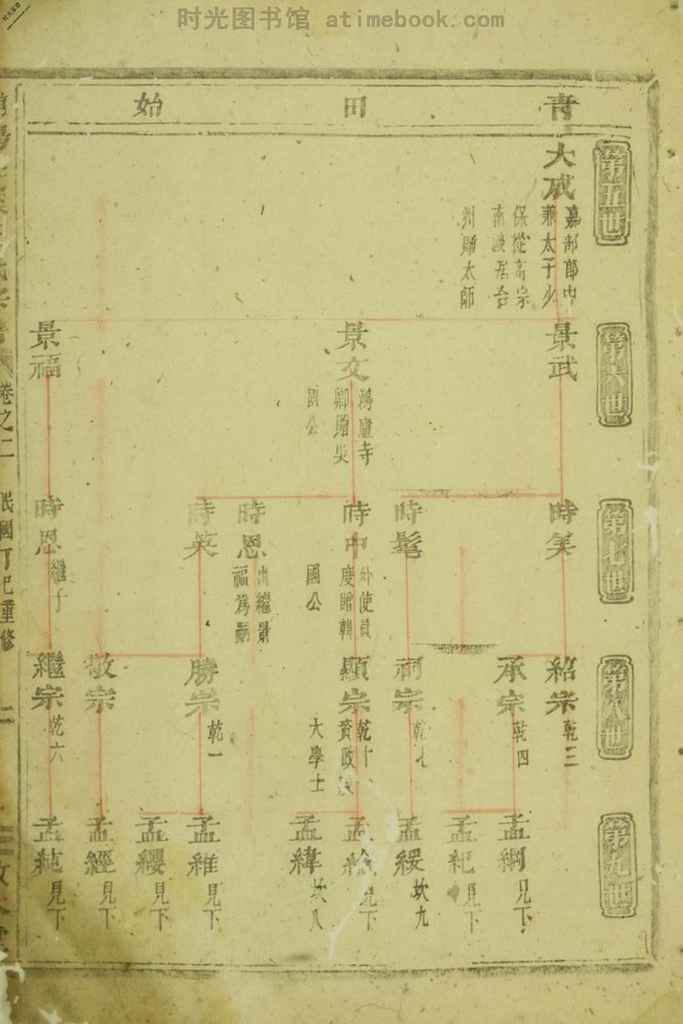 时光图书馆 atimebook.com
青田始
第五世
大成
嘉部郎中
兼太子少
保從高宗
南渡居台
州贈太師
第六世
景武
景文
鴻臚寺
卿贈吳
國公
景福
第七世
時芺
時髦
時中
度贈韓
國公
時恩
出繼景
福為嗣
時英
時恩
繼子
第八世
紹宗
乾三
承宗
乾四
祠宗
顯宗
資政殿
大學士
勝宗
乾一
敬宗
繼宗
乾六
第九世
孟綱
見下
孟紀
見下
孟綏
坎九
見下
孟緯
坎八
孟維
見下
孟纓
見下
孟經
見下
孟純
見下
卷之二
民國丁巳重修
二